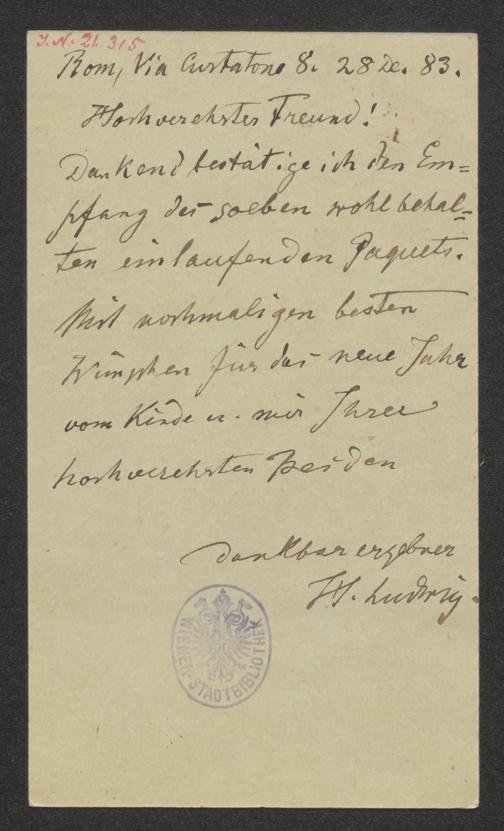 I. N. 21. 315
Rom, Via Curtatone 8. 28 De. 83.
Hochverehrter Freund!
Dankend bestätige ich den Em=
pfang des soeben wohlbehal=
ten einlaufenden Paquets.
Mit nochmaligen besten
Wünschen für das neue Jahr
vom Kinde u. mir Ihrer
hochverehrten Beiden
dankbar ergebner
H. Ludwig.
WIENER-STADTBIBLIOTHEK